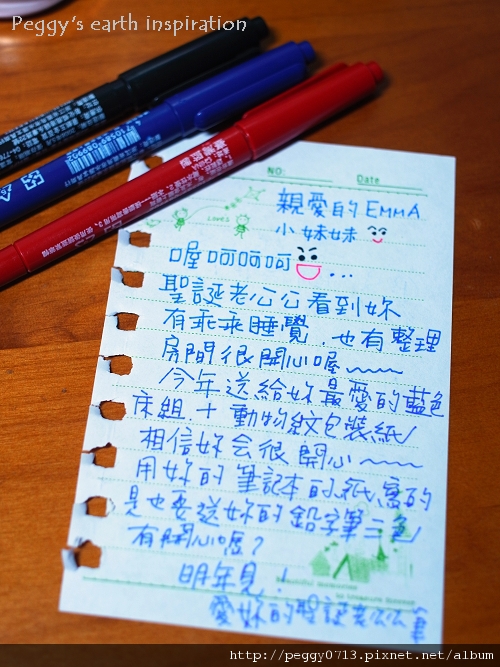 Peggy's earth inspiration
NO:
Date
LOVES
親愛的EMMA
小妹妹
喔呵呵呵...
聖誕老公公看到妳
有乖乖睡覺,也有整理
房間很開心喔~~~
今年送給妳最愛的藍色
床組+動物紋包裝紙
相信妳会很開心~~~
用妳的筆記本的紙寫的
是也要送妳的鉛字筆三色
有開心喔?
明年見!
愛妳的聖誕老公公筆
http://peggy0713.pixnet.net/album